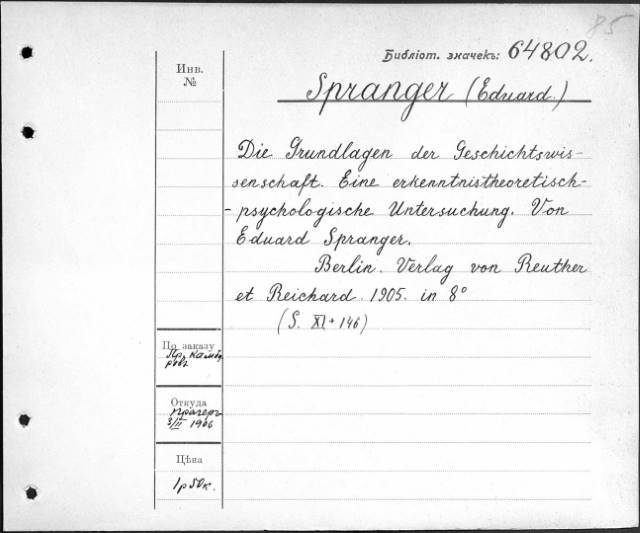 85
Библіот. значекъ: 64802.
Инв.
№
Spranger (Eduard.)
Die Grundlagen der Geschichtswis-
senschaft. Eine erkenntnistheoretisch-
-psychologische Untersuchung. Von
Eduard Spranger.
Berlin. Verlag von Reuther
et Reichard. 1905. in 8°
(S. XI + 146)
По заказу
Пр.
ровъ
Откуда
Прагеръ
3/II 1906
Цѣна
1 р 50 к.